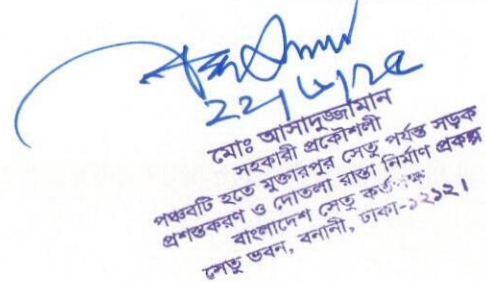 ২২/৬/২৫
মোঃ আসাদুজ্জামান
সহকারী প্রকৌশলী
পঞ্চবটি হতে মুক্তারপুর সেতু পর্যন্ত সড়ক
প্রশস্তকরণ ও দোতলা রাস্তা নির্মাণ প্রকল্প
বাংলাদেশ সেতু কর্তৃপক্ষ
সেতু ভবন, বনানী, ঢাকা-১২১২।